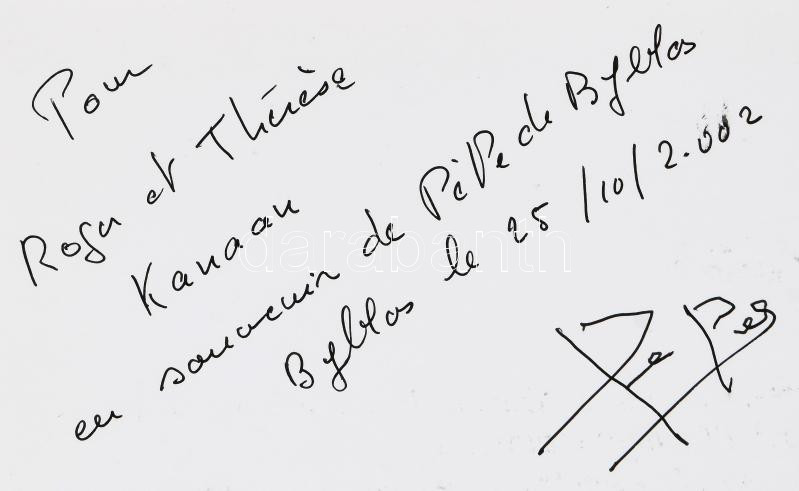 Pour
Roger et Thérèse
Kanaan
en souvenir de PéPe de Byblos
Byblos le 25/10/2.002
PePe
darabanth